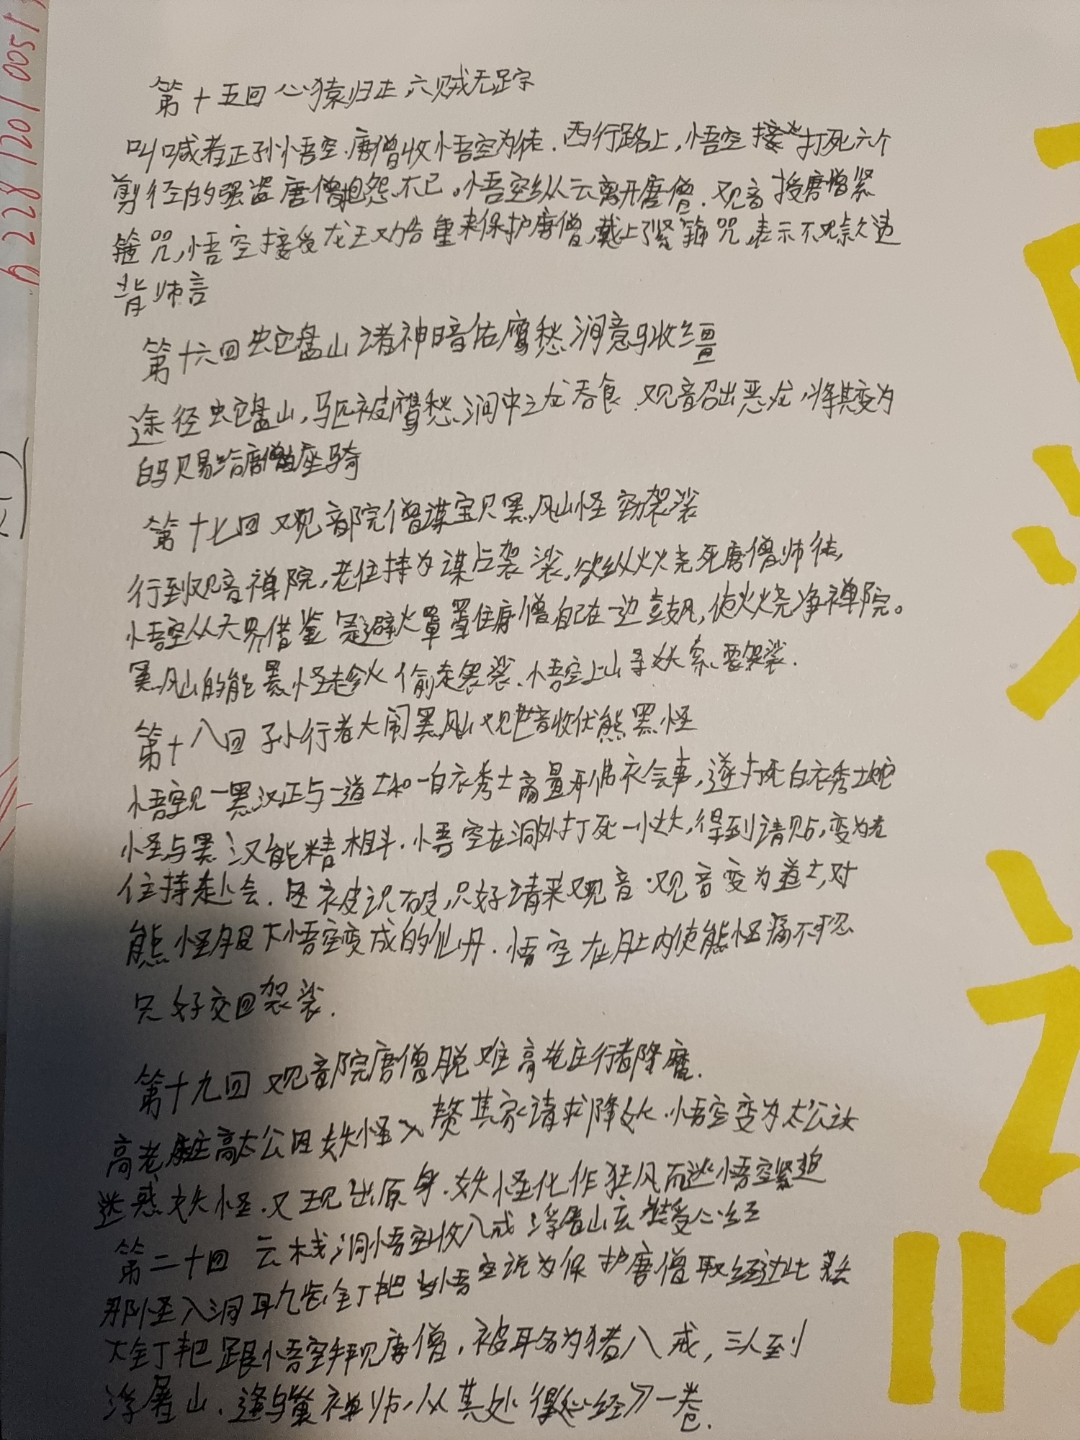 第十五回 心猿归正 六贼无踪
叫喊者正孙悟空.唐僧收悟空为徒.西行路上,悟空接 打死六个
剪径的强盗唐僧抱怨不已。悟空纵云离开唐僧.观音授唐僧紧
箍咒,悟空接受龙王劝告重来保护唐僧,戴上了紧箍咒,表示不敢违
背师言
第十六回蛇盘山诸神暗佑鹰愁涧意马收缰
途径蛇盘山,马匹被鹰愁涧中之龙吞食.观音召出恶龙,将其变为
白马赐给唐僧座骑
第十七回观音院僧谋宝贝黑风山怪窃袈裟
行到观音禅院,老住持为谋占袈裟,欲纵火烧死唐僧师徒,
悟空从天界借 避火罩罩住唐僧自己在一边鼓风,使火烧净禅院。
黑风山的能黑怪趁火偷走袈裟.悟空上山寻妖索要袈裟.
第十八回孙行者大闹黑风山观世音收伏熊黑怪
悟空见一黑汉正与一道士和一白衣秀士商量开佛衣会事,遂打死白衣秀士蛇
怪与黑汉能精相斗.悟空在洞外打死一小妖,得到请贴,变为老
住持赴会. 被识破,只好请来观音.观音变为道士,对
熊怪服下悟空变成的仙丹.悟空在肚内使熊怪痛不可忍
只好交回袈裟.
第十九回观音院唐僧脱难高老庄行者降魔.
高老庄高太公因妖怪入赘其家请求降妖.悟空变为太公女
迷惑妖怪.又现出原身.妖怪化作狂风而逃悟空紧追
第二十回 云栈洞悟空收八戒 浮屠山玄奘受心经
那怪入洞取九齿钉耙 悟空说为保护唐僧取经过此
大钉耙跟悟空拜见唐僧,被取名为猪八戒,三人到
浮屠山.逢乌巢禅师.从其处得《心经》一卷.
228 /20/ 005/